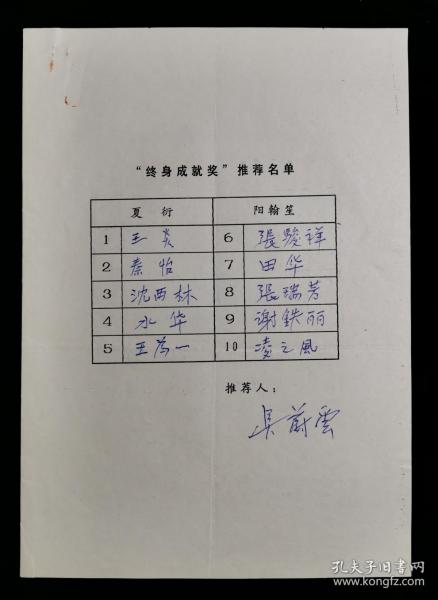 “终身成就奖”推荐名单
夏衍 阳翰笙
1 王炎 6 張骏祥
2 秦怡 7 田华
3 沈西林 8 張瑞芳
4 水华 9 谢鉄丽
5 王为一 10 凌之風
推荐人：
吳蔚雲
孔夫子旧书网
www.kongfz.com